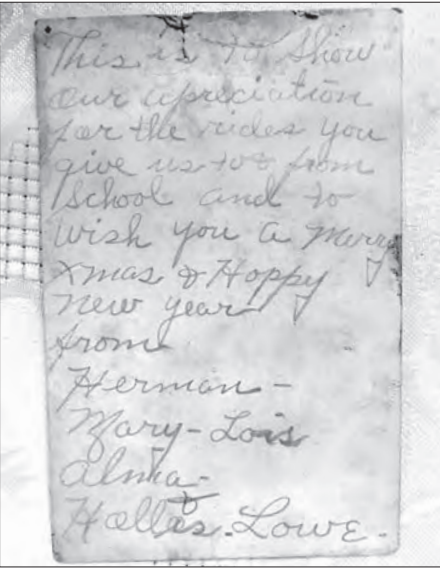 This is to show
our apreciation
for the rides you
give us to & from
school and to
wish you a Merry
Xmas & Hoppy
new year
from
Herman -
Mary - Lois
Alma -
&
Hollis - Lowe -